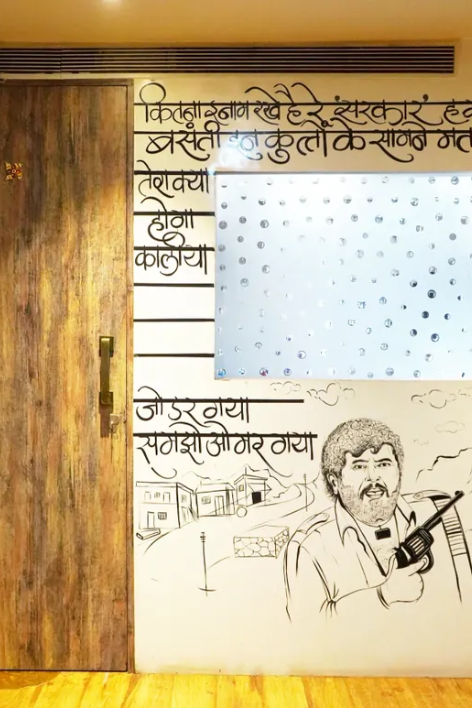 कितना इनाम रखे है रे 'सरकार'
बसंती इन कुत्तों के सामने मत
तेरा क्या
होगा
कालीया
जो डर गया
समझो ओ मर गया